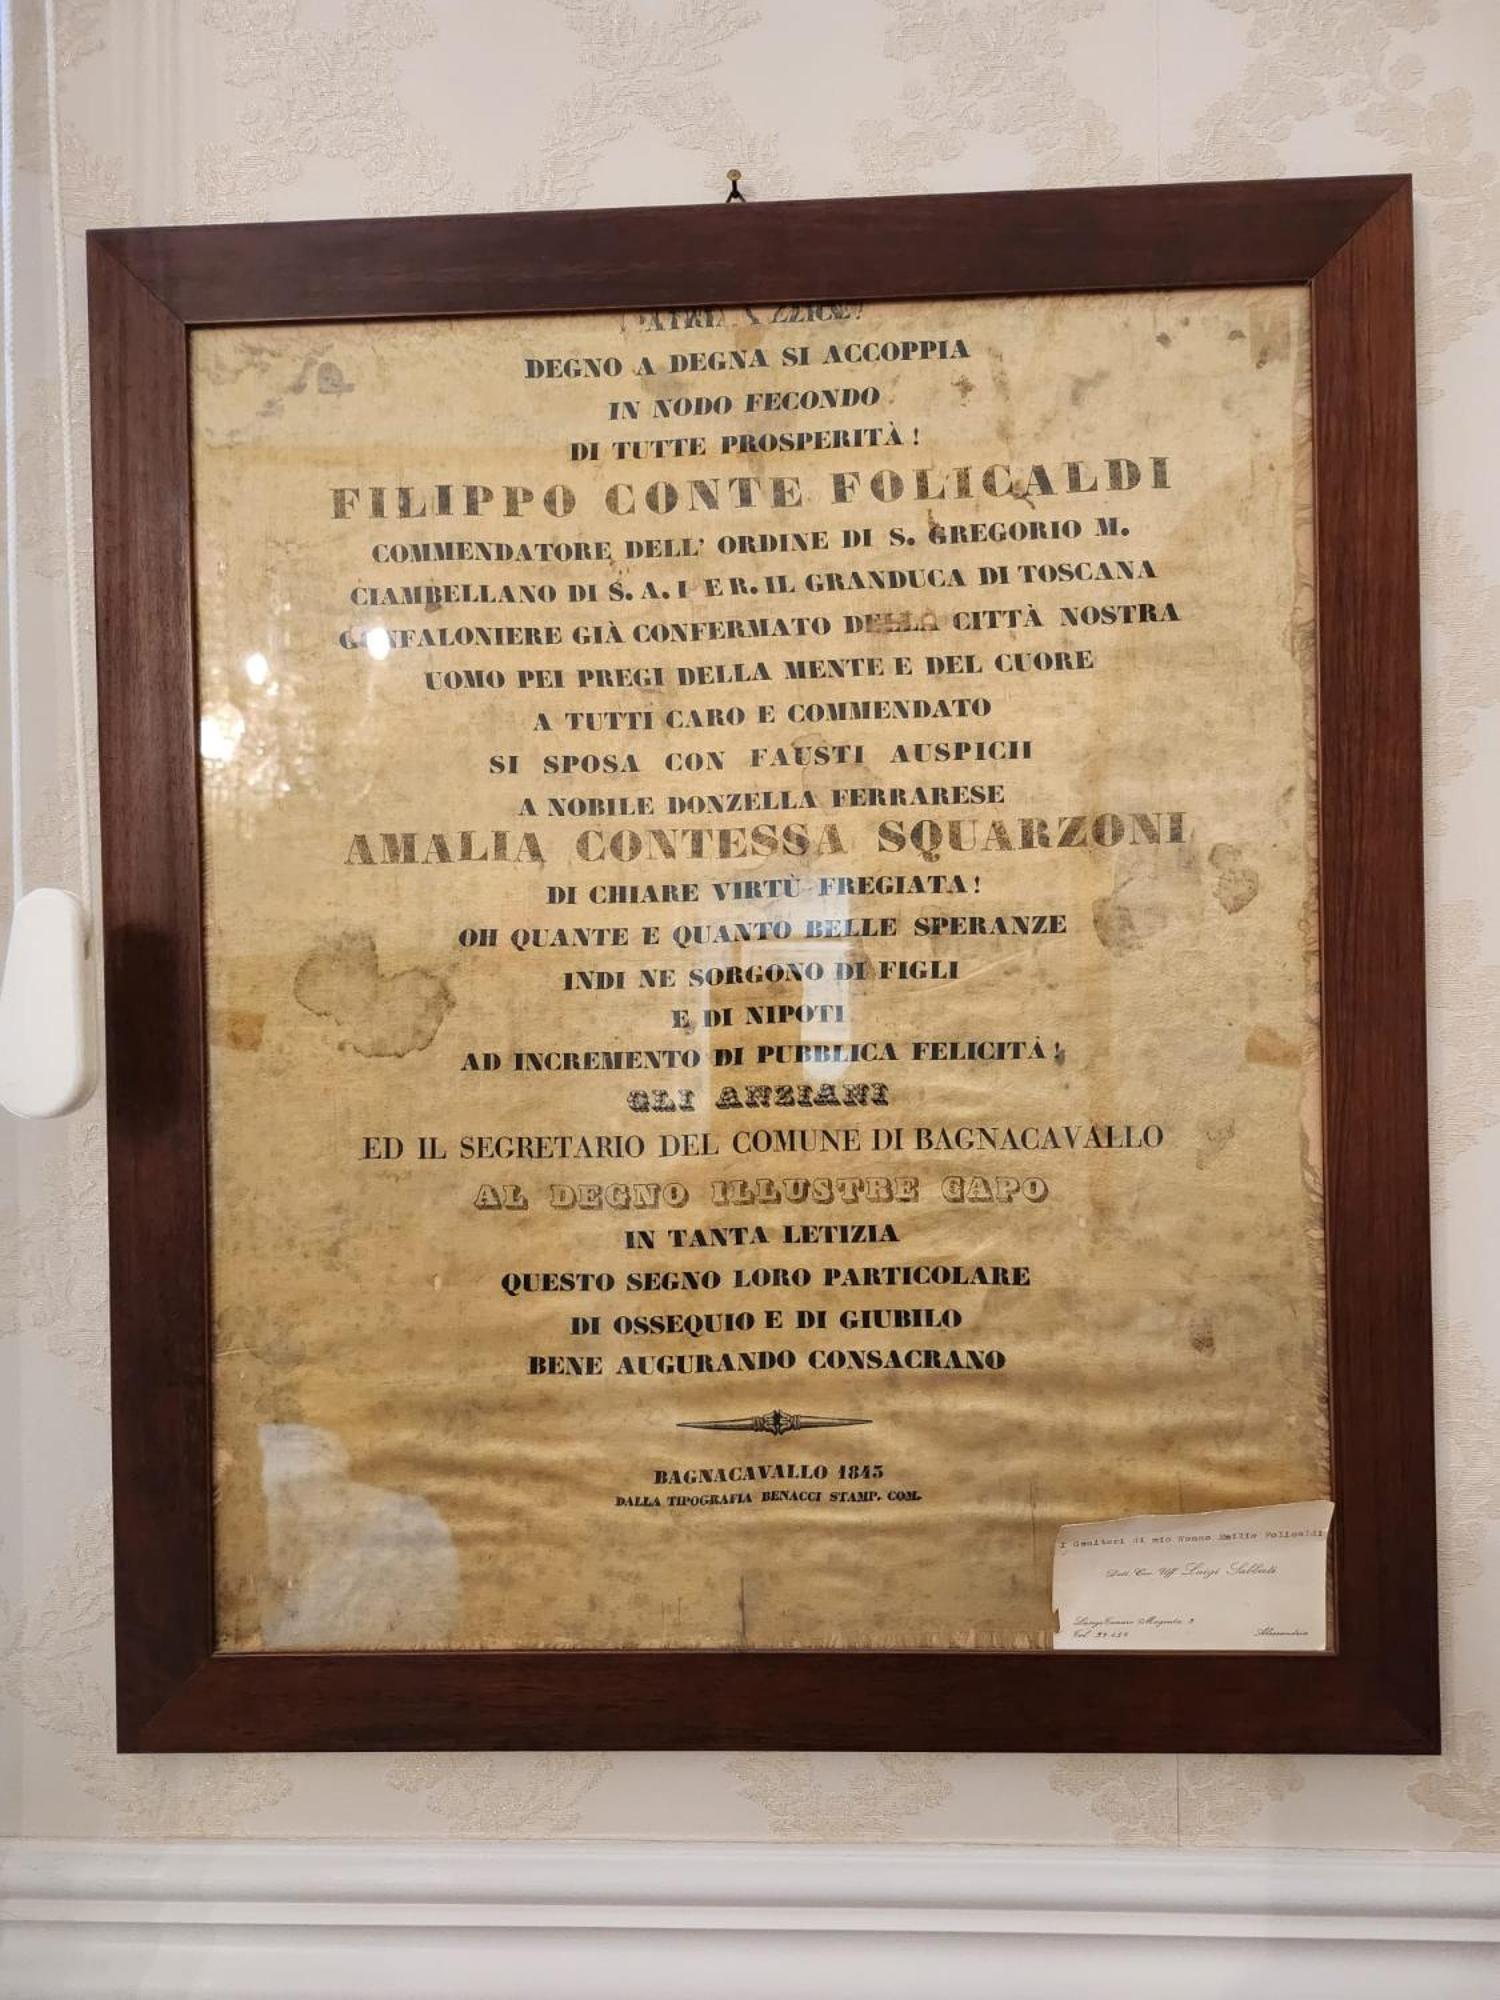 DEGNO A DEGNA SI ACCOPPIA
IN NODO FECONDO
DI TUTTE PROSPERITÀ !
FILIPPO CONTE FOLICALDI
COMMENDATORE DELL' ORDINE DI S. GREGORIO M.
CIAMBELLANO DI S. A. I E R. IL GRANDUCA DI TOSCANA
GONFALONIERE GIÀ CONFERMATO DELLA CITTÀ NOSTRA
UOMO PEI PREGI DELLA MENTE E DEL CUORE
A TUTTI CARO E COMMENDATO
SI SPOSA CON FAUSTI AUSPICII
A NOBILE DONZELLA FERRARESE
AMALIA CONTESSA SQUARZONI
DI CHIARE VIRTÙ FREGIATA !
OH QUANTE E QUANTO BELLE SPERANZE
INDI NE SORGONO DI FIGLI
E DI NIPOTI
AD INCREMENTO DI PUBBLICA FELICITÀ !
GLI ANZIANI
ED IL SEGRETARIO DEL COMUNE DI BAGNACAVALLO
AL DEGNO ILLUSTRE CAPO
IN TANTA LETIZIA
QUESTO SEGNO LORO PARTICOLARE
DI OSSEQUIO E DI GIUBILO
BENE AUGURANDO CONSACRANO
BAGNACAVALLO 1845
DALLA TIPOGRAFIA BENACCI STAMP. COM.
I Genitori di mio Nonno Emilio Folicaldi
Dott. Cav. Uff. Luigi Sabbati
Magenta
Tel.
Alessandria